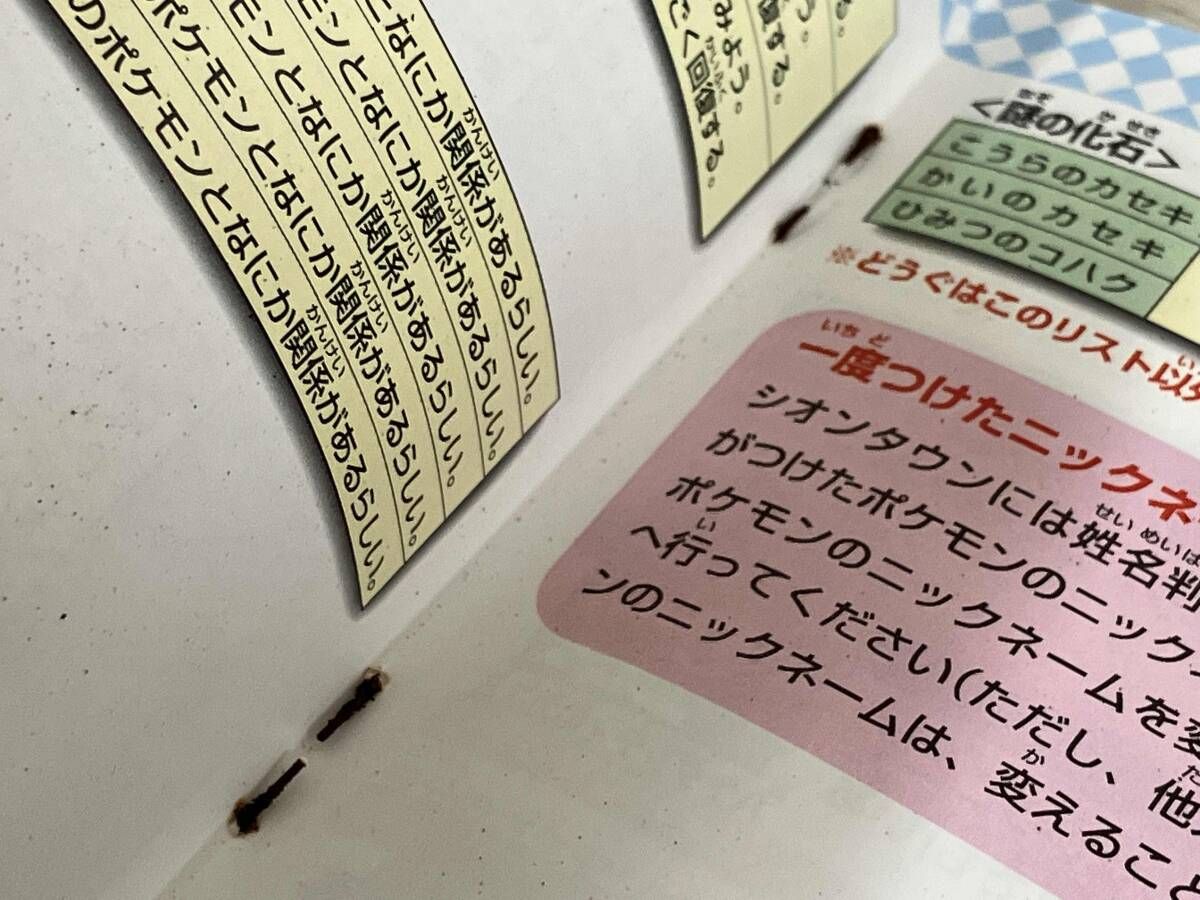 となにか関係があるらしい。
モンとなにか関係があるらしい。
モンとなにか関係があるらしい。
ポケモンとなにか関係があるらしい。
のポケモンとなにか関係があるらしい。
る。
つ。
復する。
みよう。
く回復する。
<謎の化石>
こうらのカセキ
かいのカセキ
ひみつのコハク
※どうぐはこのリスト以外
一度つけたニックネ
シオンタウンには姓名判
がつけたポケモンのニック
ポケモンのニックネームを変
へ行ってください(ただし、他
ンのニックネームは、変えること